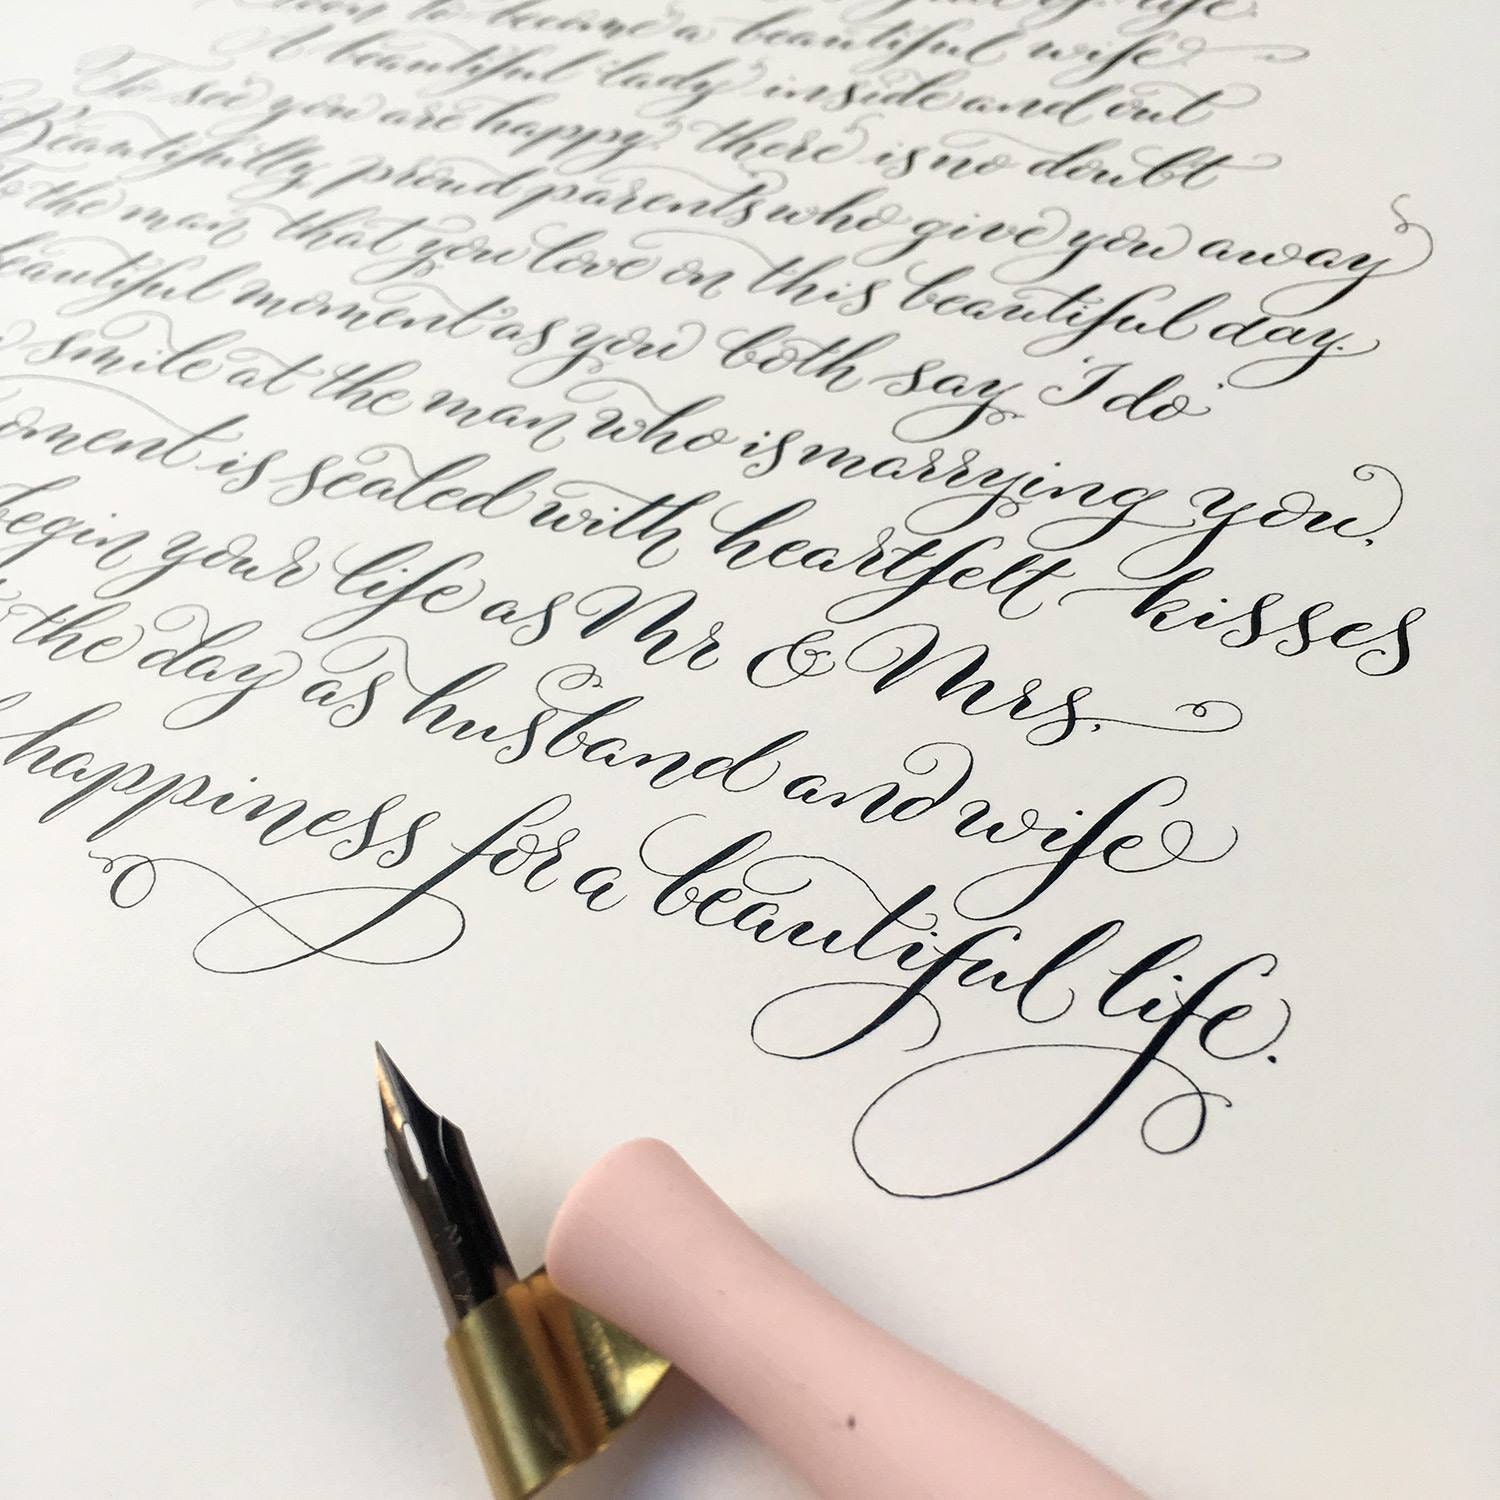 life.
to become a beautiful wife
A beautiful 'lady' inside and out
To see you are happy, there is no doubt
Beautifully proud parents who give you away
the man that you love on this beautiful day.
beautiful moment as you both say 'I do'
smile at the man who is marrying you.
moment is sealed with heartfelt kisses
begin your life as Mr & Mrs.
the day as husband and wife
happiness for a beautiful life.